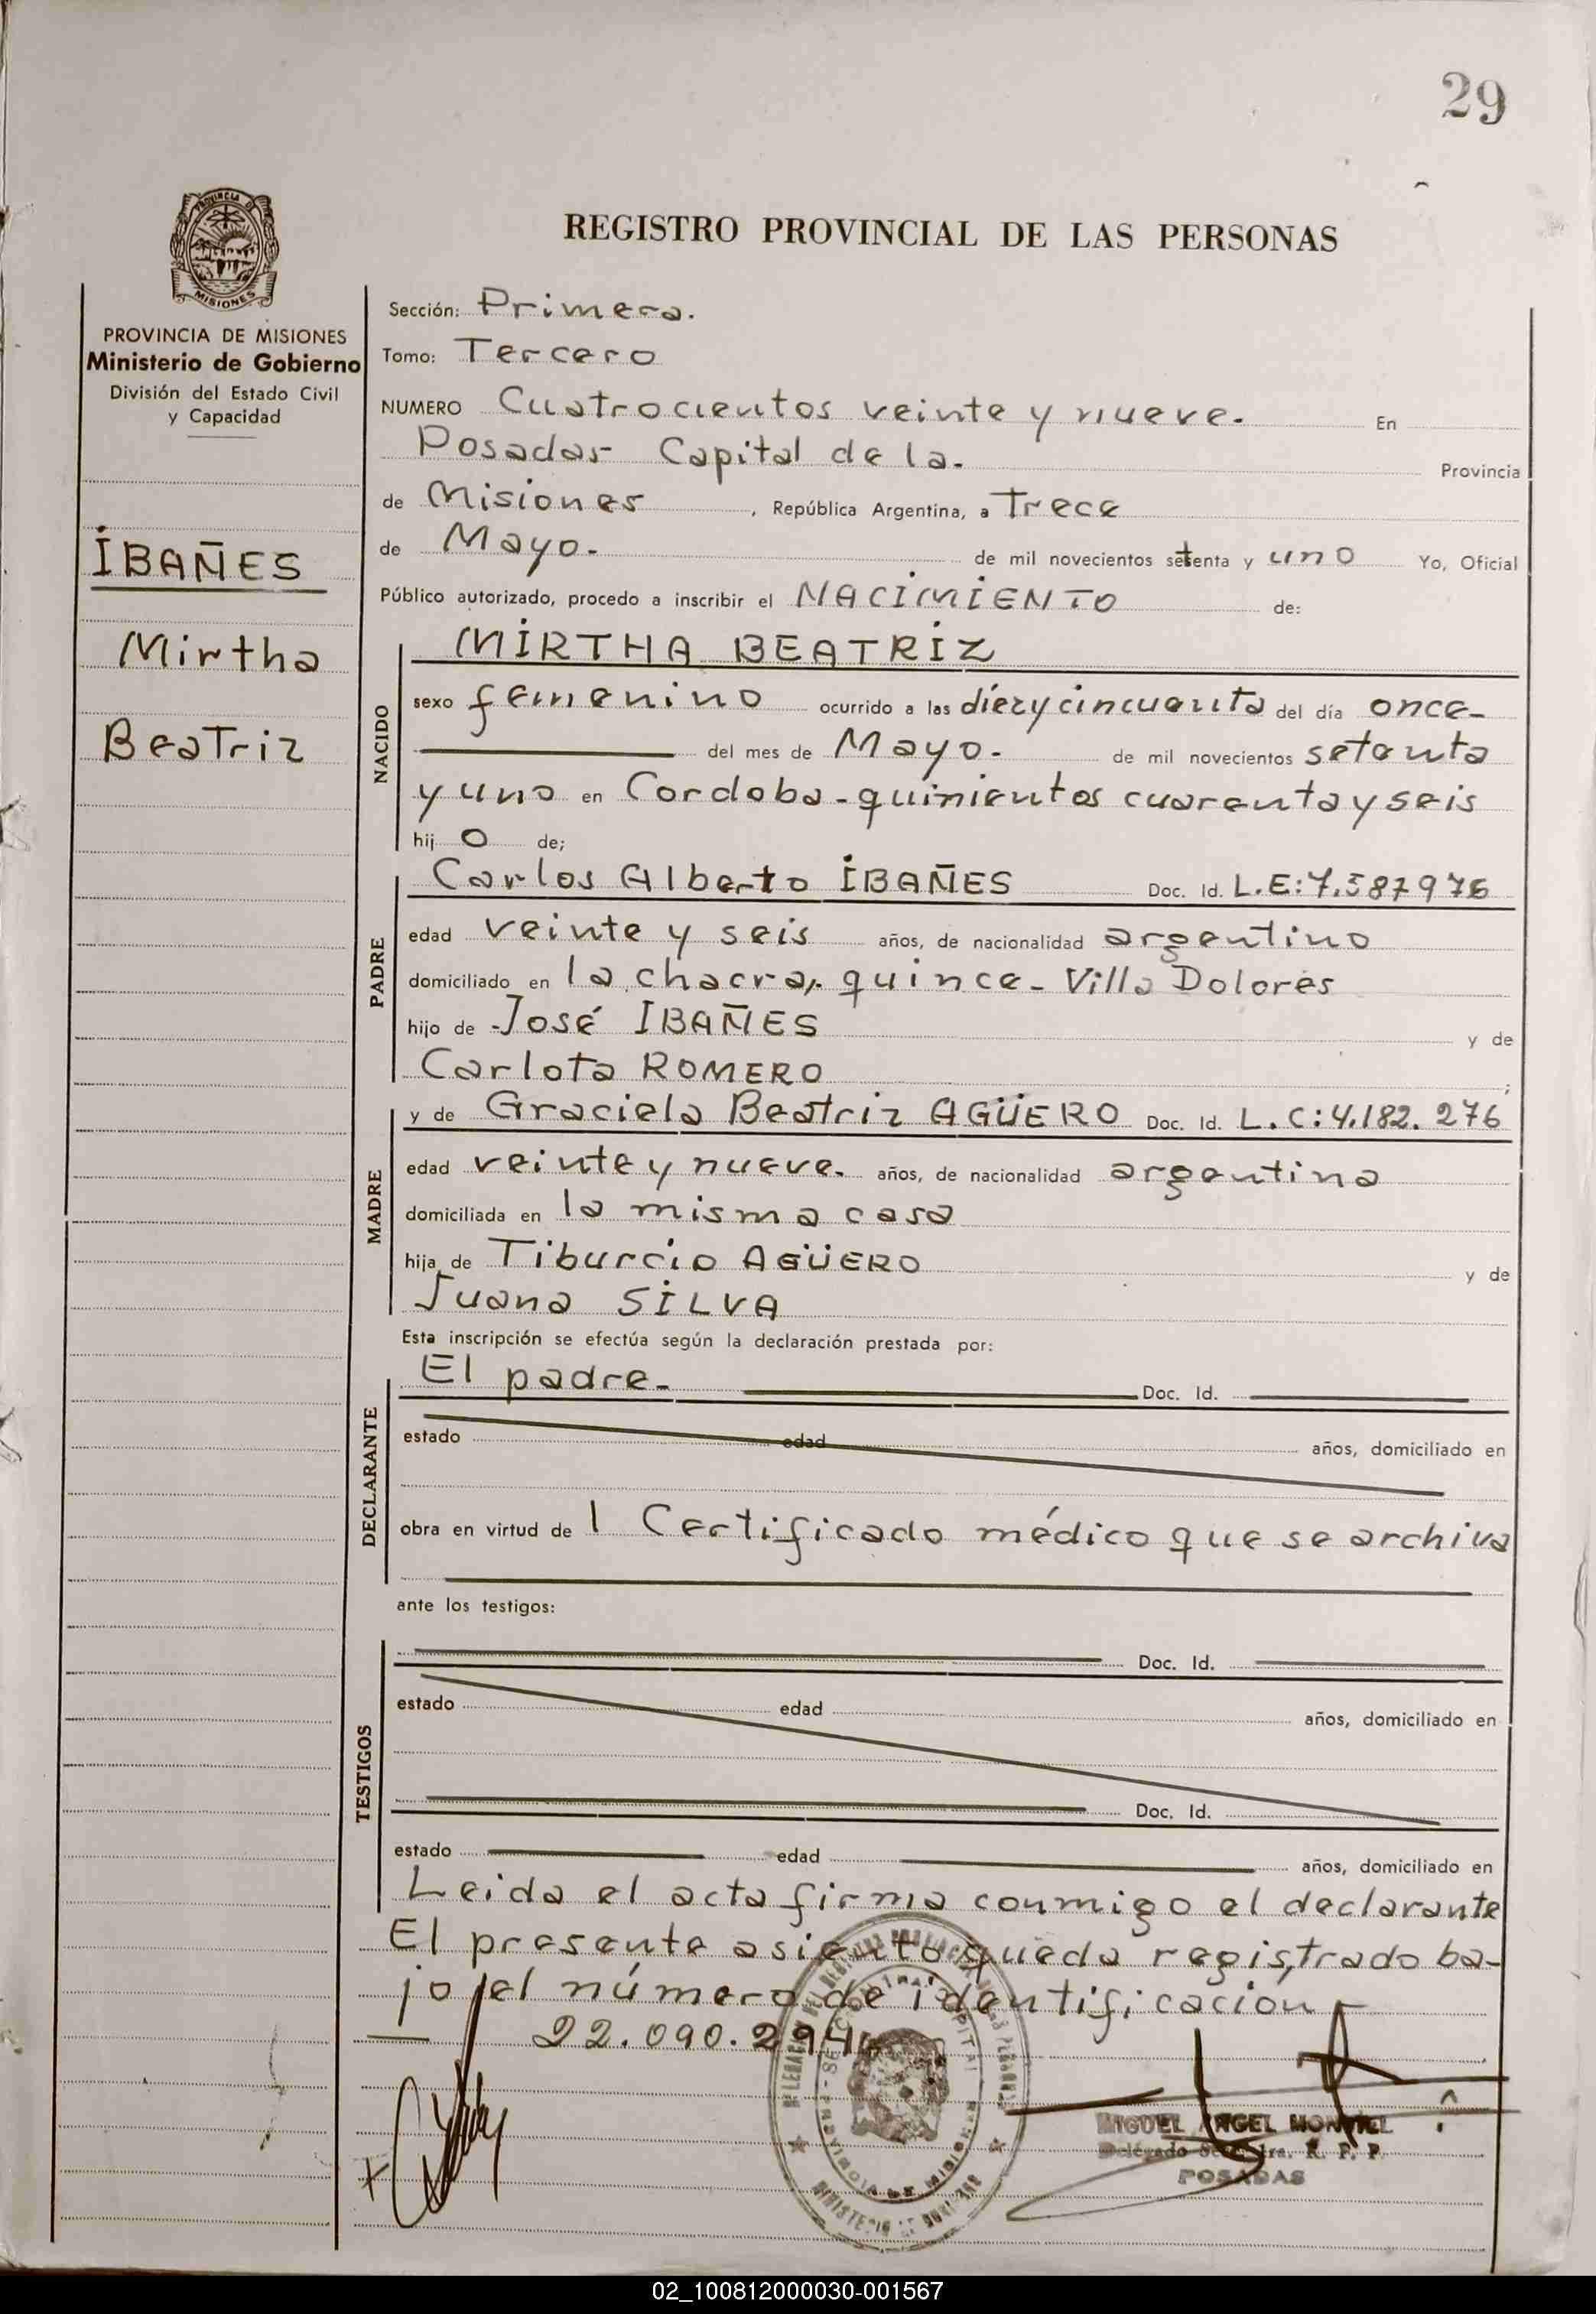 29
REGISTRO PROVINCIAL DE LAS PERSONAS
PROVINCIA DE MISIONES
Ministerio de Gobierno
División del Estado Civil
y Capacidad
IBAÑES
Mirtha
Beatriz
Sección: Primera.
Tomo: Tercero
NUMERO Cuatrocientos veinte y nueve. En
Posadas Capital de la. Provincia
de Misiones, República Argentina, a Trece
de Mayo. de mil novecientos setenta y uno Yo, Oficial
Público autorizado, procedo a inscribir el NACIMIENTO de:
NACIDO
MIRTHA BEATRIZ
sexo femenino ocurrido a las diez y cincuenta del día once-
del mes de Mayo. de mil novecientos setenta
y uno en Cordoba - quinientos cuarenta y seis
hij o de;
PADRE
Carlos Alberto IBAÑES Doc. Id. L.E: 7.587976
edad veinte y seis años, de nacionalidad argentino
domiciliado en la chacra, quince - Villa Dolores
hijo de José IBAÑES y de
Carlota ROMERO ;
MADRE
y de Graciela Beatriz AGÜERO Doc. Id. L.C: 4.182.276
edad veinte y nueve. años, de nacionalidad argentina
domiciliada en la misma casa
hija de Tiburcio AGÜERO y de
Juana SILVA
Esta inscripción se efectúa según la declaración prestada por:
DECLARANTE
El padre- Doc. Id.
estado edad años, domiciliado en
obra en virtud de 1 Certificado médico que se archiva
ante los testigos:
TESTIGOS
Doc. Id.
estado edad años, domiciliado en
Doc. Id.
estado edad años, domiciliado en
Leida el acta firma conmigo el declarante
El presente asiento queda registrado ba-
jo el número de identificacion
22.090.294
MIGUEL ANGEL MONTIEL
POSADAS
02_100812000030-001567